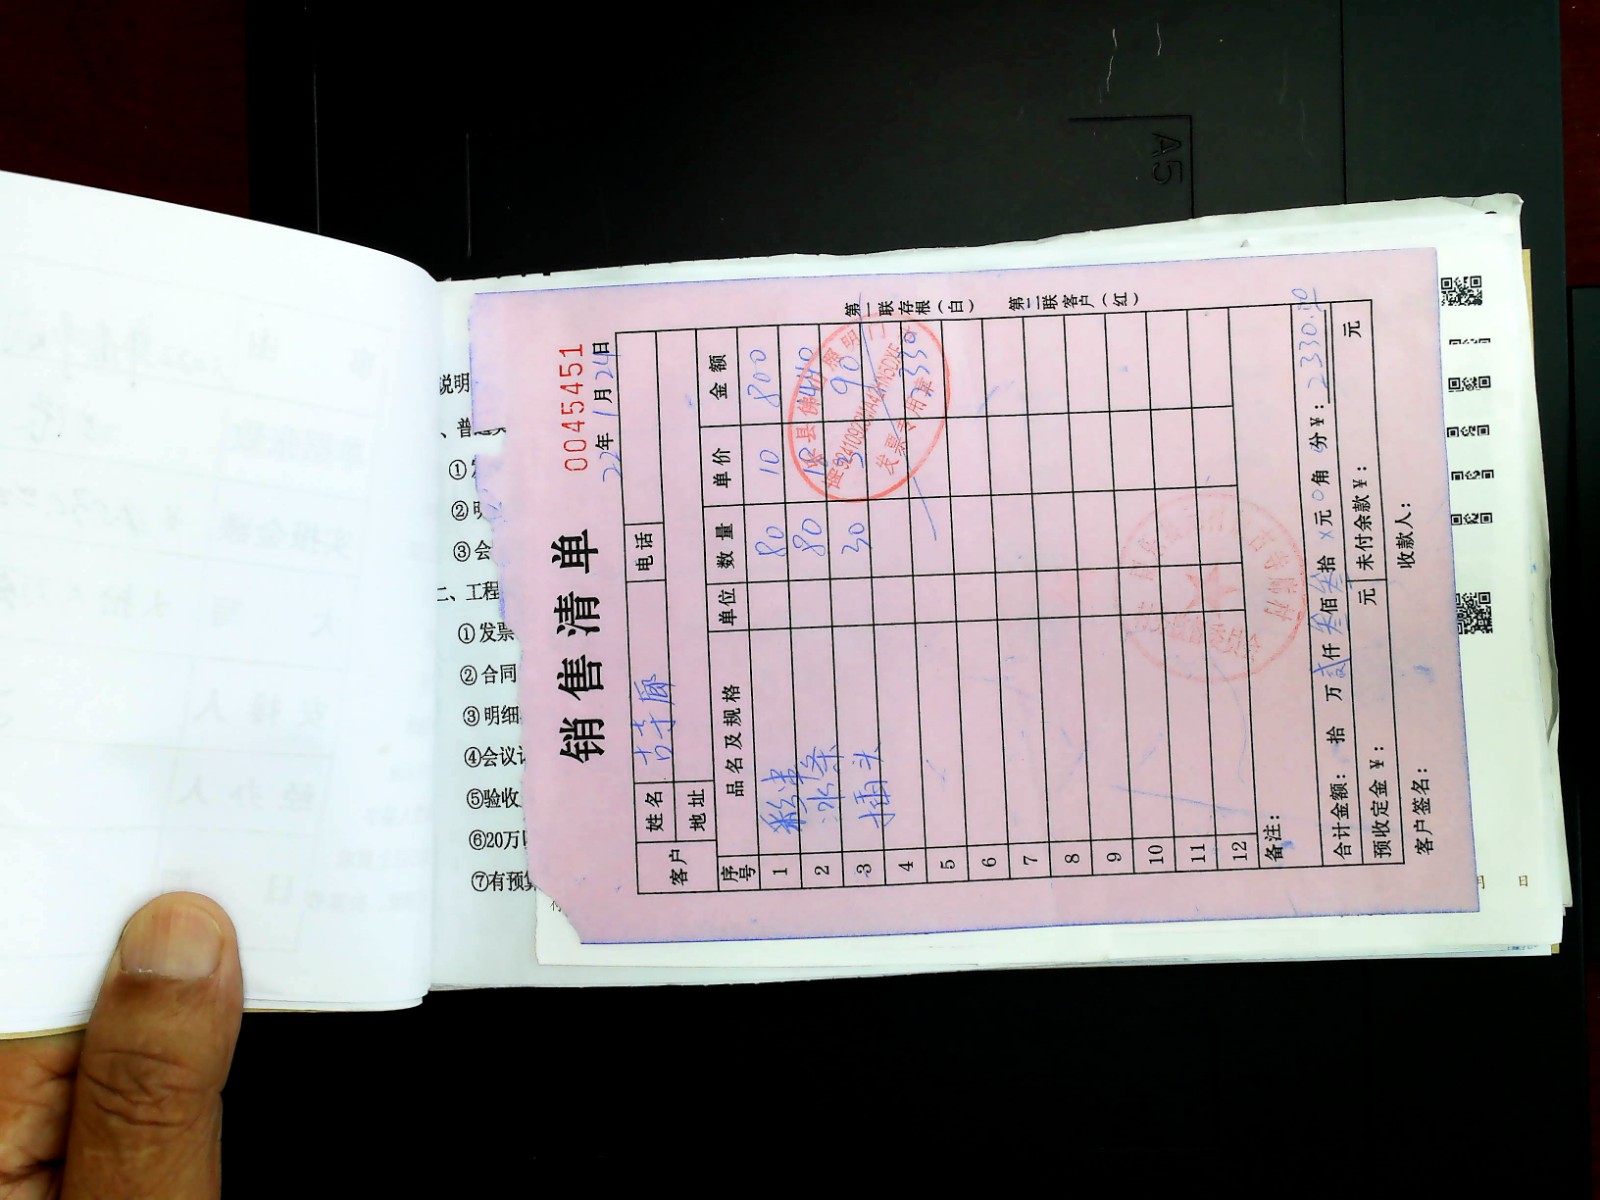 销售清单
0045451
22年1月24日
客户 姓名 电话
地址
序号 品名及规格 单位 数量 单价 金额
1 彩带 80 10 800
2 80 18 1440
3 插头 30 3 90
4 2330
5
6
7
8
9
10
11
12
备注:
合计金额: 拾 万 贰仟 叁佰 叁拾 X元 0角 分¥: 2330.00
预收定金¥: 元 未付余款¥: 元
客户签名: 收款人:
第一联存根(白) 第二联客户(红)
发票专用章
说明
①
②明
③会
二、工程
①发票
②合同
③明细
④会议
⑤验收
⑥20万
⑦有预算
A5